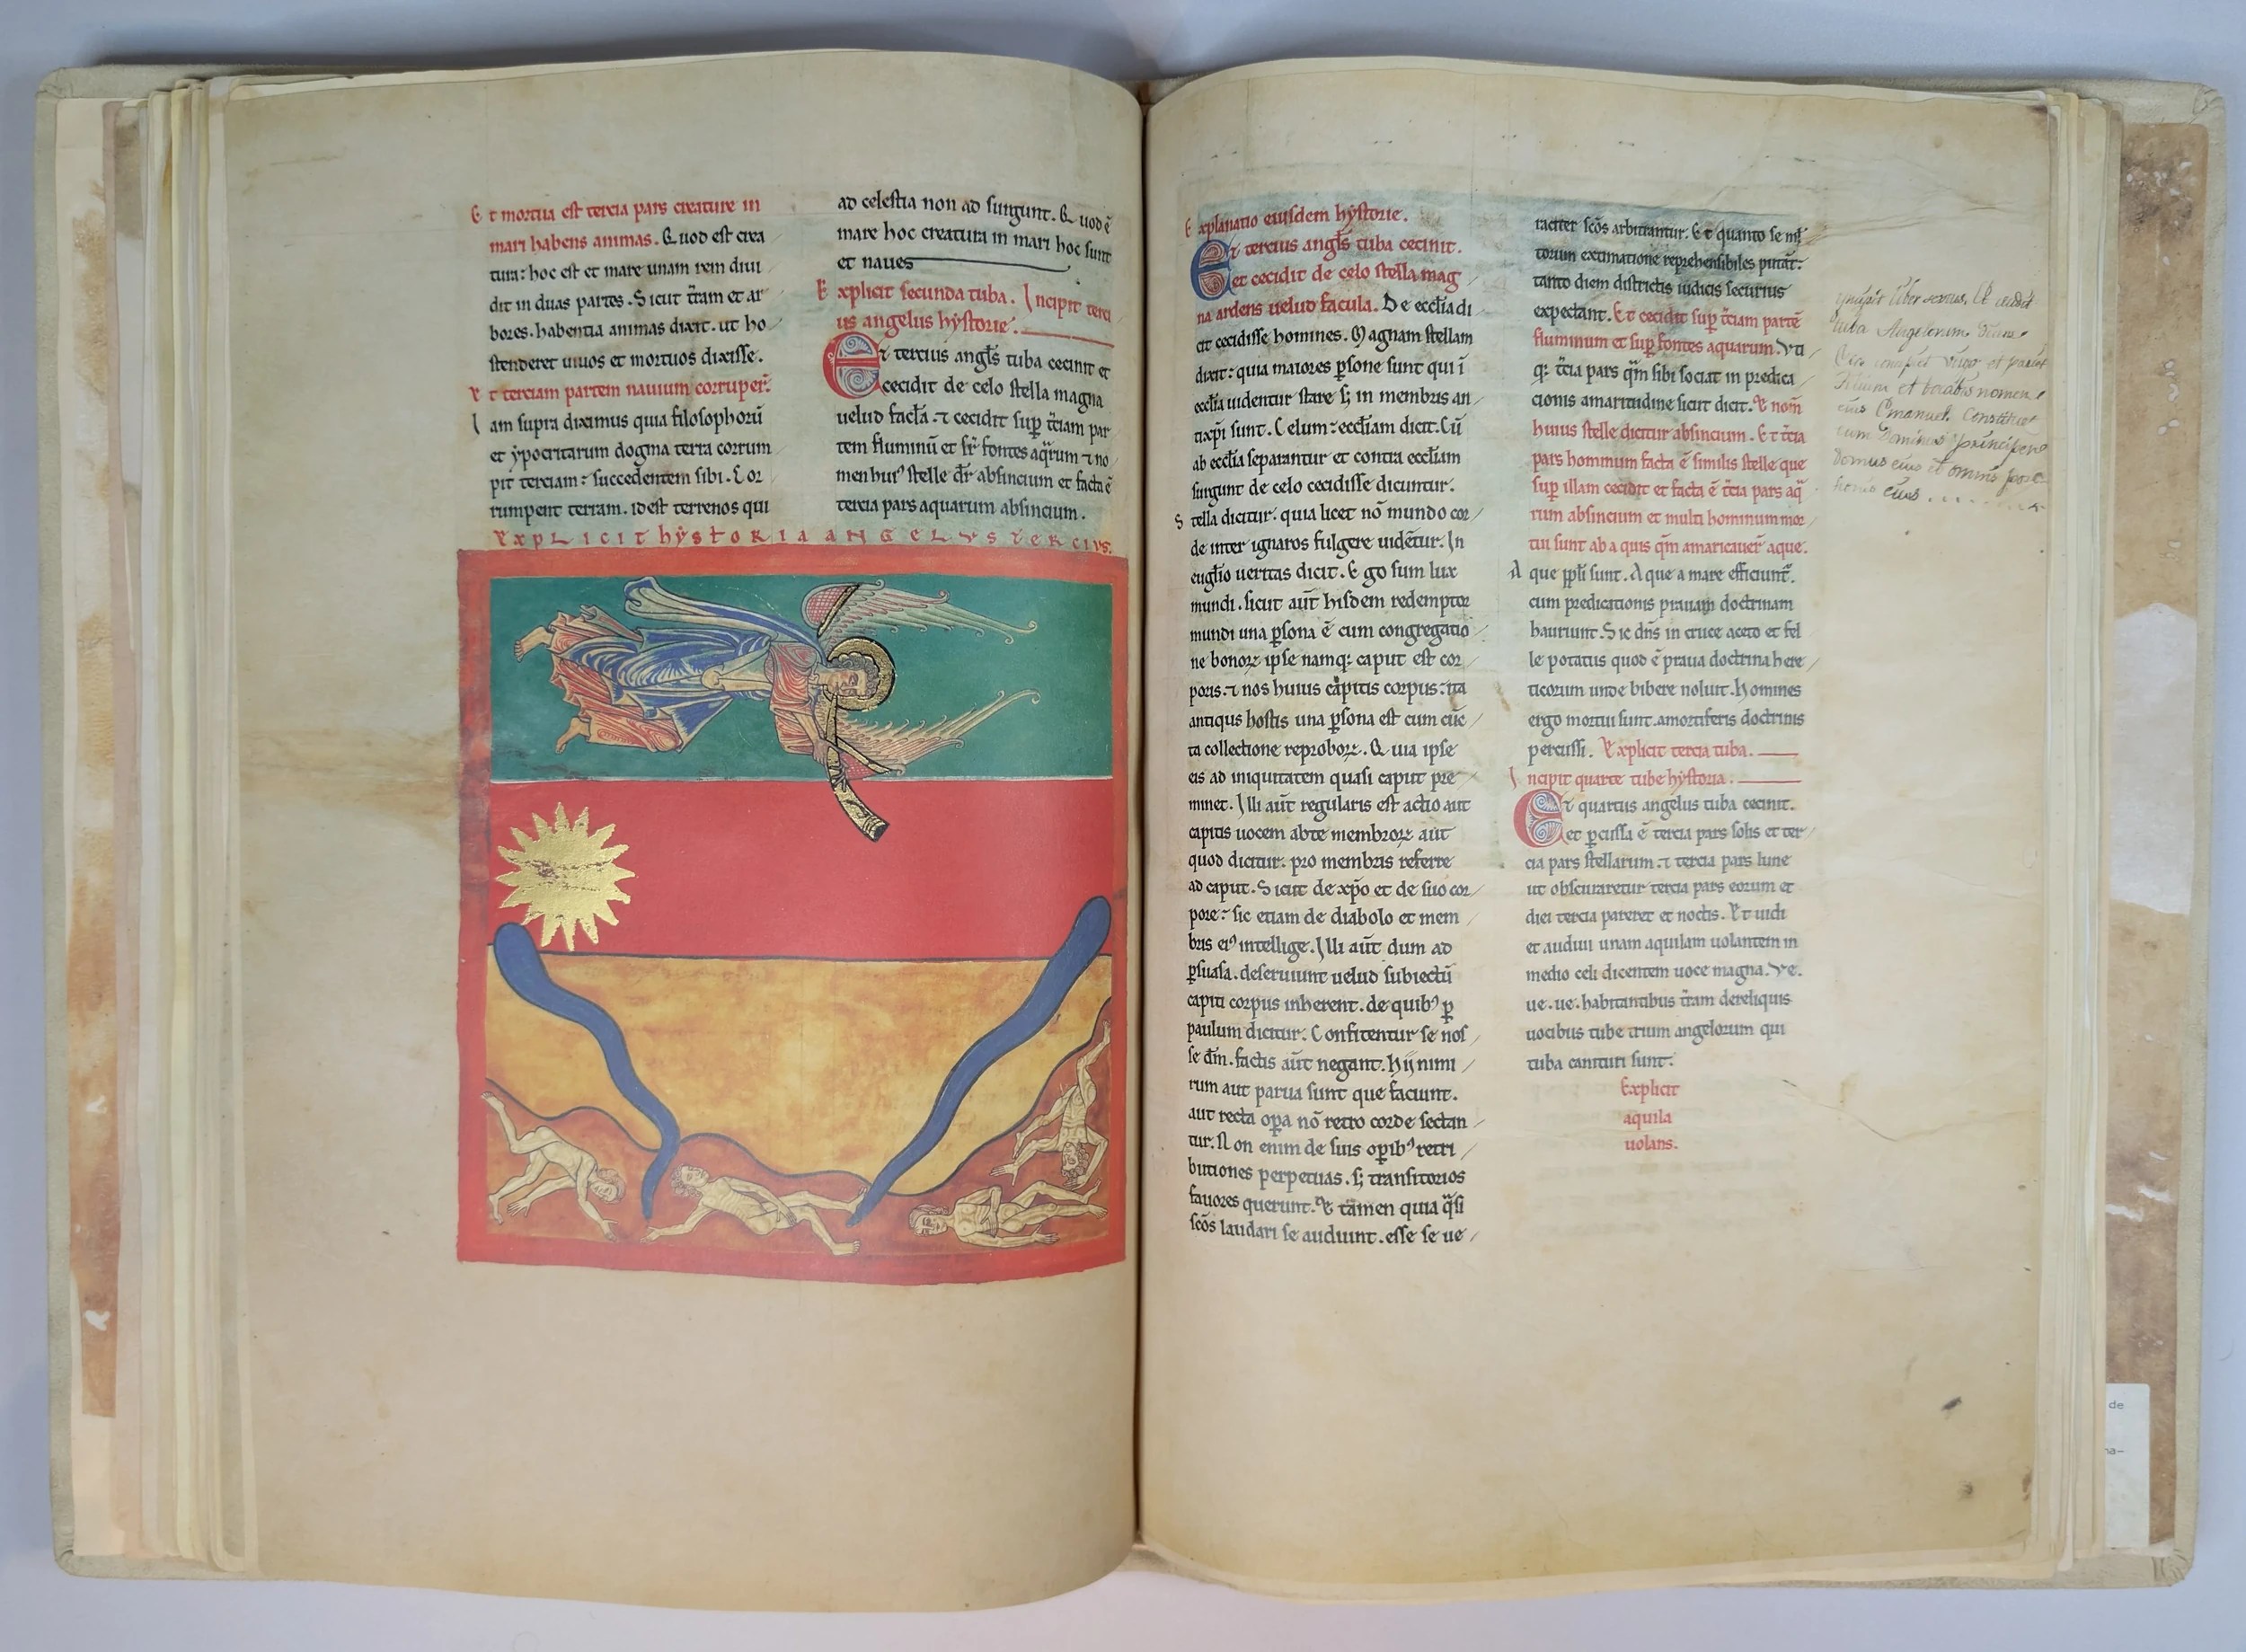 Et mortua est tercia pars creature in
mari habens animas. Quod est crea
tura: hoc est et mare unam rem diui
dit in duas partes. Sicut t̄ram et ar
bores. habentia animas dixit. ut ho
stenderet uiuos et mortuos dixisse.
Et terciam partem nauium corruper̄.
Iam supra diximus quia filosophorū
et ẏpocritarum dogma terra corrum
pit terciam: succedentem sibi. Cor
rumpent terram. id est terrenos qui
ad celestia non ad surgunt. Quod ē
mare hoc creatura in mari hoc sunt
et naues
Explicit secunda tuba. Incipit terci
us angelus hẏstorie.
Et tercius angl̄s tuba cecinit et
cecidit de celo stella magna
uelud facl̄a. ⁊ cecidit sup̄ t̄ciam par
tem fluminū et sr̄ fontes aq̄rum ⁊ no
men huiꝰ stelle dr̄ absincium et facta ē
tercia pars aquarum absincium.
Explicit hẏstoria angelus tercius.
Explanatio eiusdem hẏstorie.
Et tercius angl̄s tuba cecinit.
et cecidit de celo stella mag
na ardens uelud facula. De eccl̄ia di
cit cecidisse homines. Magnam stellam
dixit: quia maiores ꝑsone sunt qui ī
eccl̄ia uidentur stare ẜ; in membris an
tixp̄i sunt. Celum: eccl̄iam dicit. Cū
ab eccl̄ia separantur et contra eccl̄iam
surgunt de celo cecidisse dicuntur.
Stella dicitur. quia licet nō mundo cor
de inter ignaros fulgere uidētur. In
eugl̄io ueritas dicit. Ego sum lux
mundi. sicut aūt hisdem redemptor
mundi una ꝑsona ē cum congregatio
ne bonoꝝ ipse namq: caput est cor
poris. ⁊ nos huius capitis corpus: ita
antiqus hostis una ꝑsona est cum cūc
ta collectione reproboꝝ. Quia ipse
eis ad iniquitatem quasi caput pre
minet. Illi aūt regularis est actio aut
capitis uocem abte membroꝝ aūt
quod dicitur. pro membris referre
ad caput. Sicut de xp̄o et de suo cor
pore: sic etiam de diabolo et mem
bris eiꝰ intellige. Illi aūt dum ad
ꝑsuasa. deseruiunt uelud subiectū
capiti corpus inherent. de quibꝰ ꝑ
paulum dicitur. Confitentur se nos
se dm̄. factis aūt negant. Hij nimi
rum aut parua sunt que faciunt.
aut recta oꝑa nō retro corde sectan
tur. Non enim de suis oꝑibꝰ retri
butiones perpetuas. ẜ; transitorios
fauores querunt. Et tamen quia q̄si
scōs laudari se audiunt. esse se ue
raciter scōs arbitrantur. Et quanto se ml̄
torum extimatione reprehensibiles putāt.
tanto diem districtis iudicis securius
expectant. Et cecidit sup̄ t̄ciam partē
fluminum et sup̄ fontes aquarum. Vti
q: t̄cia pars qm̄ sibi sociat in predica
cionis amaritudine sicut dicit. Et nom̄
huius stelle dicitur absincium. Et t̄cia
pars hominum facta ē similis stelle que
sup̄ illam cecidit et facta ē t̄cia pars aq̄
rum absincium et multi hominum mor
tui sunt ab a quis qm̄ amaricauer̄ aque.
Aque ppl̄i sunt. Aque a mare efficiunt̄.
cum predicationis prauam doctrinam
hauriunt. Sic dn̄s in cruce aceto et fel
le potatus quod ē praua doctrina here
ticorum unde bibere noluit. Homines
ergo mortui sunt. amortiferis doctrinis
percussi. Explicit tercia tuba.
Incipit quarte tube hẏstoria.
Et quartus angelus tuba cecinit.
et ꝑcussa ē tercia pars solis et ter
cia pars stellarum. ⁊ tercia pars lune
ut obscuraretur tercia pars eorum et
diei tercia pareret et noctis. Et uidi
et audiui unam aquilam uolantem in
medio celi dicentem uoce magna. Ve.
ue. ue. habitantibus t̄ram dereliquis
uocibus tube trium angelorum qui
tuba canituri sunt.
Explicit
aquila
uolans.
Incipit liber sextus. Et
tuba Angelorum.
Ecce concipiet virgo et pariet
filium et vocabis nomen
eius Emanuel. Constituet
eum Dominus principem
domus eius et omnis
eius
de
na-